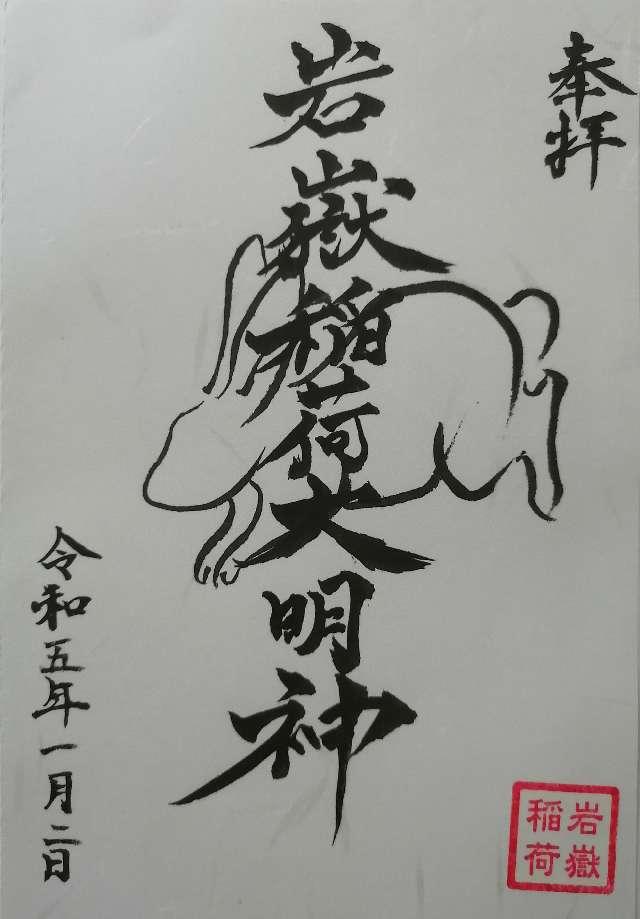 奉拝
岩嶽稲荷大明神
令和五年一月二日
岩嶽
稲荷